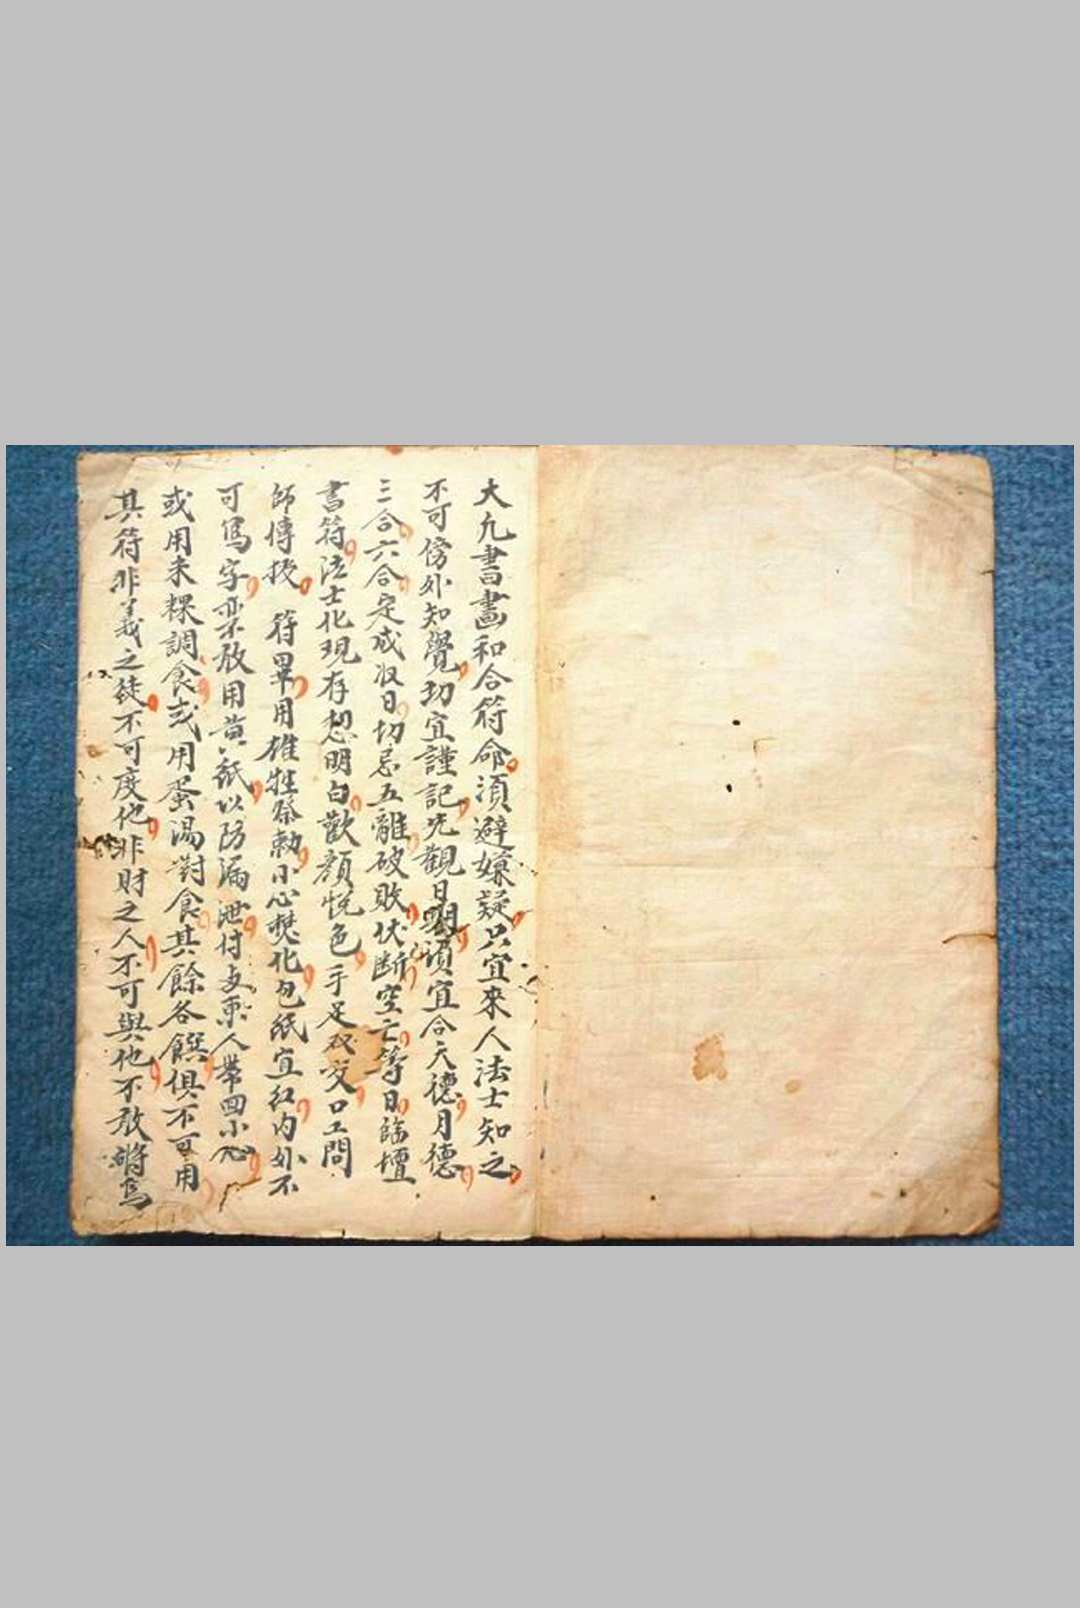 大凢書畵和合符命須避嫌疑只宜來人法士知之
不可傍外知覺切宜謹記先觀日期須宜合天德月德
三合六合定成收日切忌五離破敗伏断空亡等日臨壇
書符法士化現存想明白歡顔悅色手足双交口工問
師傳授 符畢用雄牲祭勅小心焚化包紙宜紅内外不
可寫字亦不敢用黄紙以防漏泄付与東人帶回小心
或用米粿調食或用蛋湯對食其餘各饌俱不可用
其符非義之徒不可度他非財之人不可與他不敢將爲